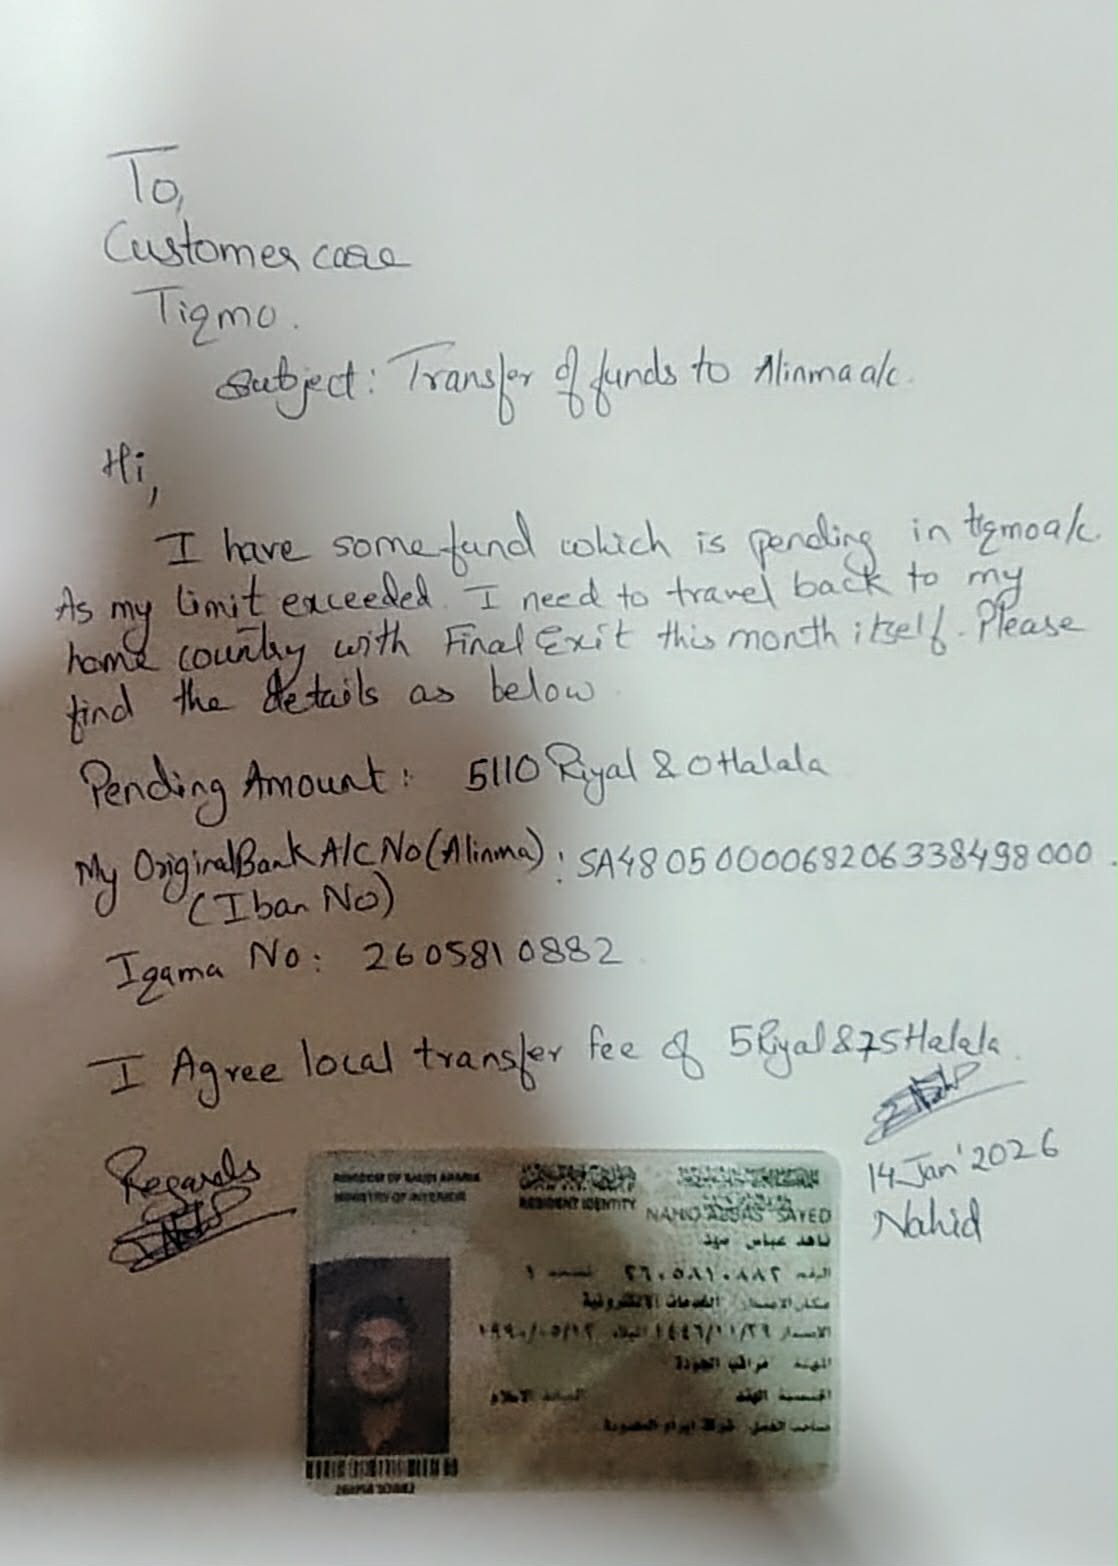 To,
Customer care
Tiqmo.
Subject: Transfer of funds to Alinma a/c.
Hi,
I have some fund which is pending in tiqmo a/c.
As my limit exceeded. I need to travel back to my
home country with Final Exit this month itself. Please
find the details as below
Pending Amount: 5110 Riyal & 0 Halala
My Original Bank A/C No (Alinma): SA4805000068206338498000.
(Iban No)
Iqama No: 2605810882
I Agree local transfer fee of 5 Riyal & 75 Halala.
Regards
14 Jan' 2026
Nahid
KINGDOM OF SAUDI ARABIA
MINISTRY OF INTERIOR
RESIDENT IDENTITY
NAHID ABBAS SAYED
ناهد عباس سيد
الرقم ٢٦٠٥٨١٠٨٨٢ نسخة ١
مكان الاصدار الخدمات الالكترونية
الاصدار ١٤٤٦/١١/٢٩ الميلاد
المهنة مراقب الجودة
الجنسية الهند الديانة الاسلام
صاحب العمل شركة